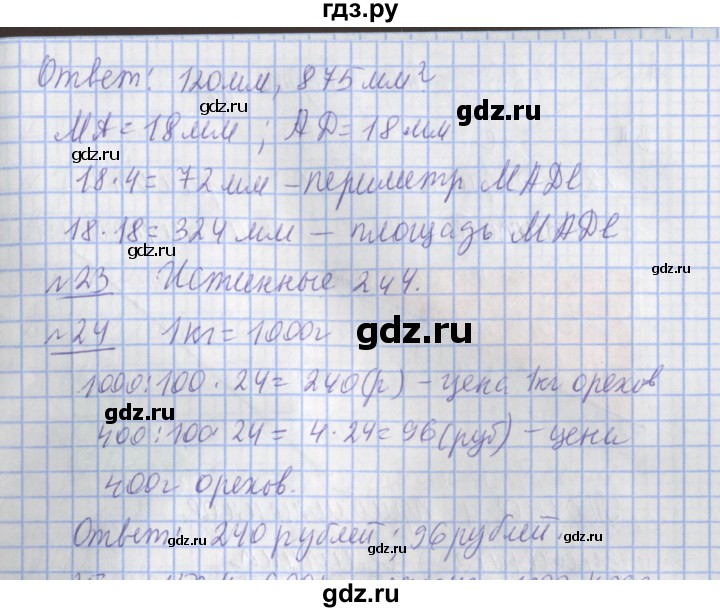 гдз.ру
Ответ: 120мм, 875мм²
МА=18мм; АД=18мм
18·4=72мм – периметр МАДС
18·18=324мм – площадь МАДС
№23 Истинные 2 4 4.
№24 1кг=1000г
1000:100·24=240(р) – цена 1кг орехов
400:100·24=4·24=96(руб) – цена
400г орехов.
Ответ: 240 рублей; 96 рублей.
gdz.ru
gdz.ru
gdz.ru
gdz.ru
gdz.ru
gdz.ru
gdz.ru
gdz.ru
gdz.ru
gdz.ru
gdz.ru
gdz.ru
gdz.ru
gdz.ru